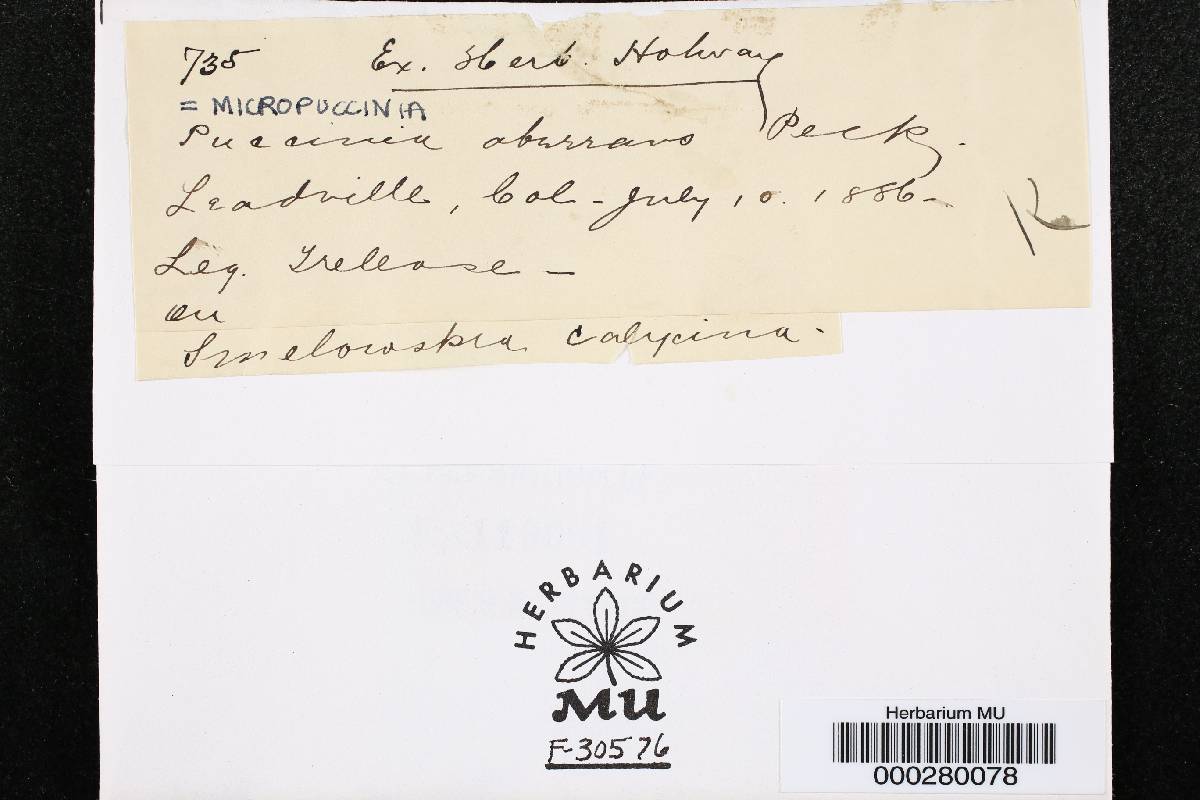 735 Ex. Herb. Holway
= MICROPUCCINIA
Puccinia aberrans Peck.
Leadville, Col - July 10. 1886 -
Leg. Trelease -
on
Smelowskia calycina -
HERBARIUM
MU
F-30576
Herbarium MU
000280078